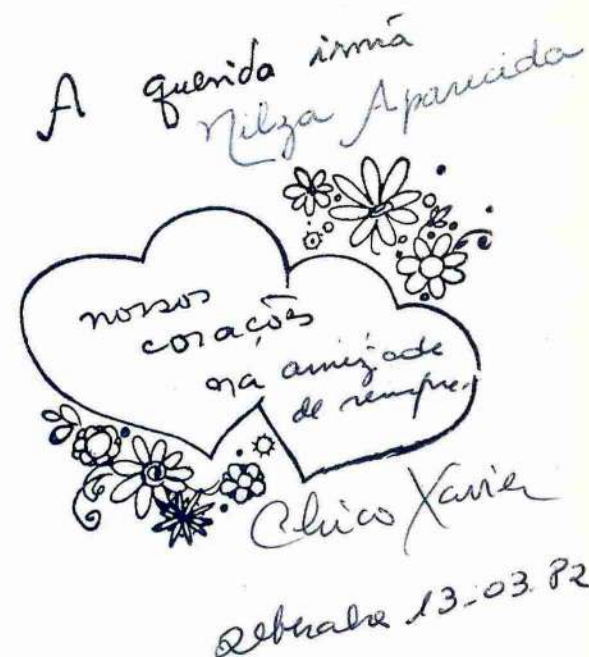 A querida irmã
Nilza Aparecida
nossos
corações
na amizade
de sempre.
Chico Xavier
Uberaba 13-03-82